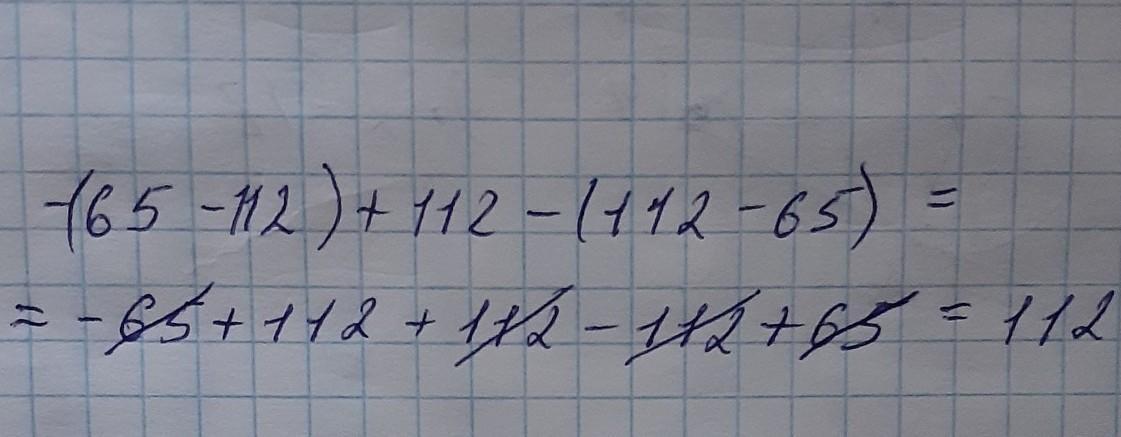 -(65-112)+112-(112-65)=
=-65+112+112-112+65=112